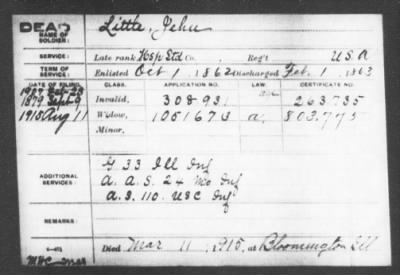 DEAD
NAME OF SOLDIER: Little, John
SERVICE: Late rank Hosp Std Co. , Reg't U.S.A
TERM OF SERVICE: Enlisted Oct 1, 1862 Discharged Feb. 1, 1863
DATE OF FILING. CLASS. APPLICATION NO. LAW. CERTIFICATE NO.
1879 Sept 9 Invalid, 308931 263735
1915 Aug 11 Widow, 1051673 803.775
Minor,
ADDITIONAL SERVICES: G 33 Ill Inf
A. A. S. 24 Mo Inf
A. S. 110. USC Inf
REMARKS:
Died Mar 11, 1915, at Bloomington Ill